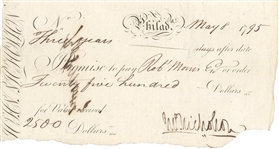 Philad. May 8 1795
Three years days after date
I Promise to pay Robt Morris Esqr or order
Twenty five hundred Dollars
for Value received
2500 Dollars
Jno Nicholson